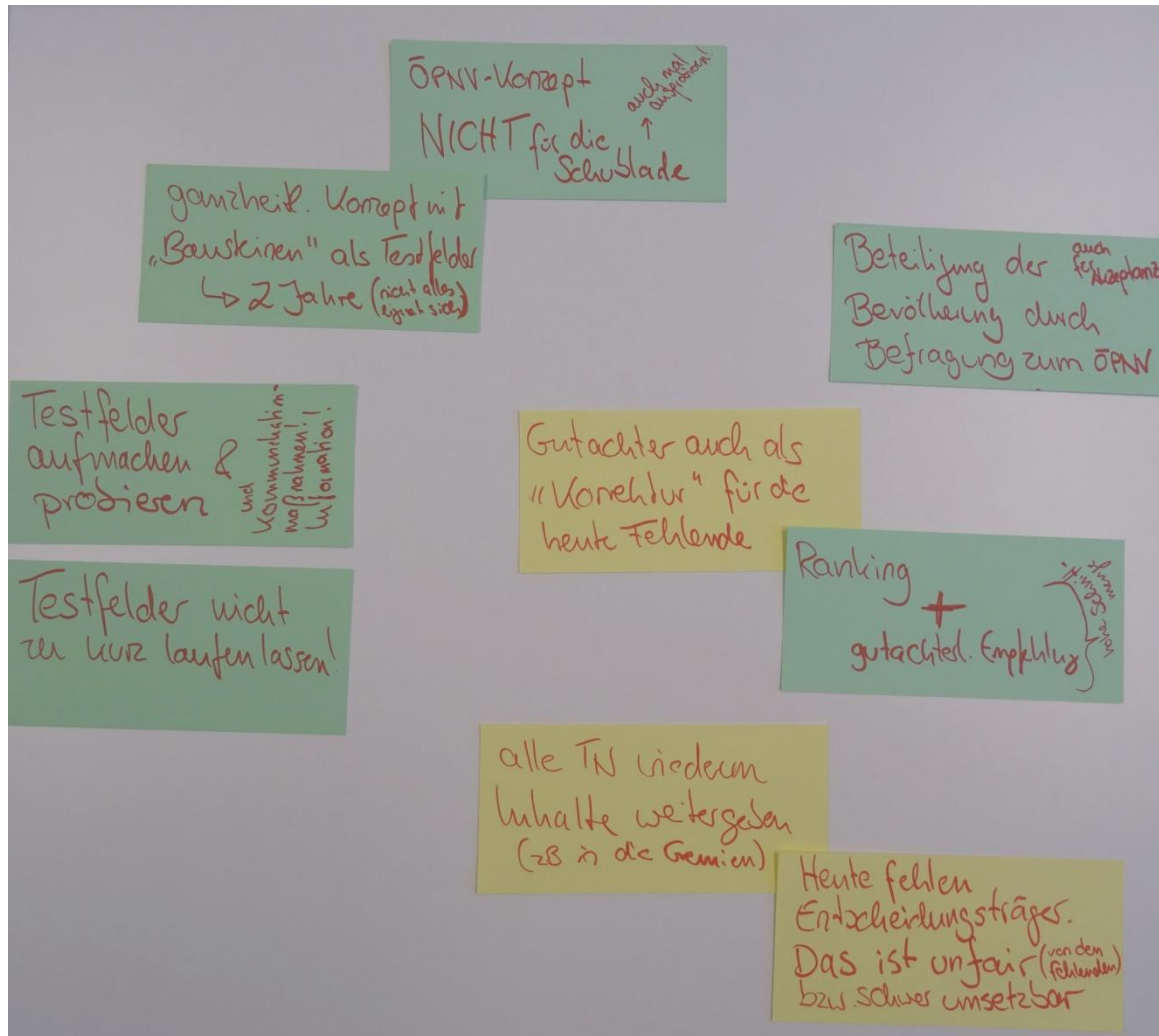 ÖPNV-Konzept
NICHT für die
Schublade
↑ auch mal
ausprobieren!
ganzheitl. Konzept mit
„Bausteinen" als Testfelder
↳ 2 Jahre (nicht alles
eignet sich)
Beteiligung der auch
für Akzeptanz
Bevölkerung durch
Befragung zum ÖPNV
Testfelder
aufmachen &
probieren
und
Kommunikation-
maßnahmen!
Information!
Gutachter auch als
„Korrektur" für die
heute Fehlende
Testfelder nicht
zu kurz laufen lassen!
Ranking
+
gutachterl. Empfehlung
alle TN wiederum
Inhalte weitergeben
(zB in die Gremien)
Heute fehlen
Entscheidungsträger.
Das ist unfair (von den
Fehlenden)
bzw. schwer umsetzbar